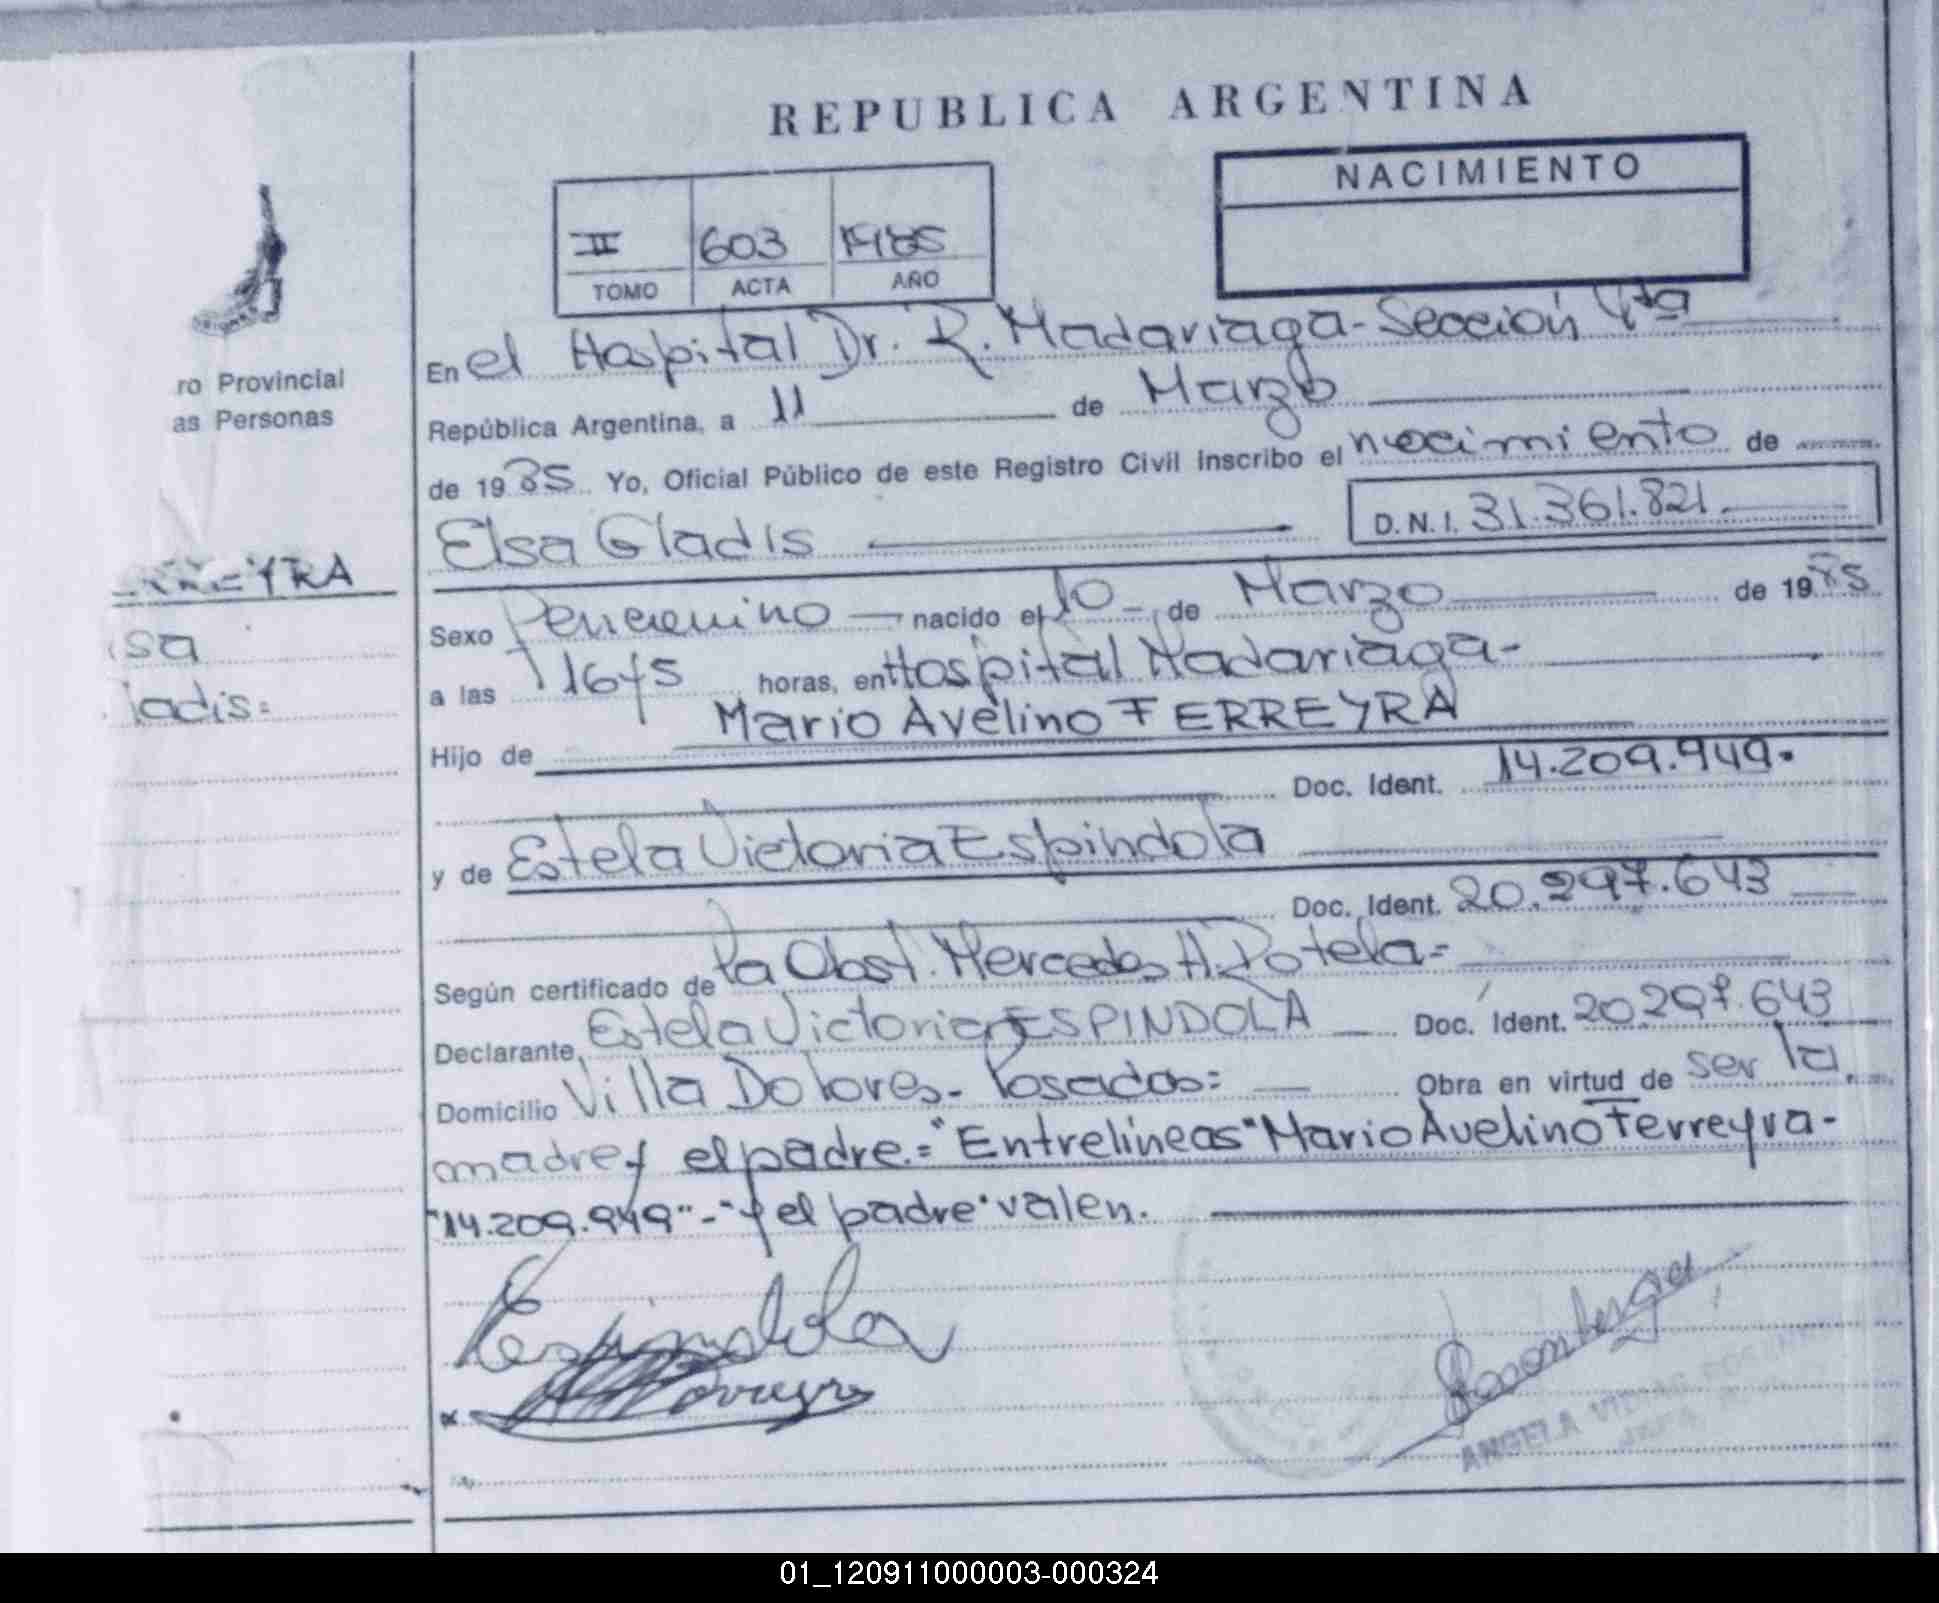 REPUBLICA ARGENTINA
NACIMIENTO
II 603 1985
TOMO ACTA AÑO
ro Provincial
as Personas
REYRA
sa
ladis=
En el Hospital Dr. R. Madariaga - Sección 4ta
República Argentina, a 11 de Marzo
de 1985 Yo, Oficial Público de este Registro Civil inscribo el nacimiento de
Elsa Gladis D.N.I. 31.361.821.
Sexo Femenino nacido el 10 de Marzo de 1985
a las 1645 horas, en Hospital Madariaga-
Mario Avelino FERREYRA
Hijo de
Doc. Ident. 14.209.949.
y de Estela Victoria Espindola
Doc. Ident. 20.297.643
Según certificado de la Obst. Mercedes A. Potela=
Declarante, Estela Victoria ESPINDOLA Doc. Ident. 20.297.643
Domicilio Villa Dolores - Posadas= Obra en virtud de ser la
madre y el padre.= "Entrelineas" Mario Avelino Ferreyra-
"14.209.949" - "y el padre" valen.
Espindola
Ferreyra
ANGELA
01_120911000003-000324